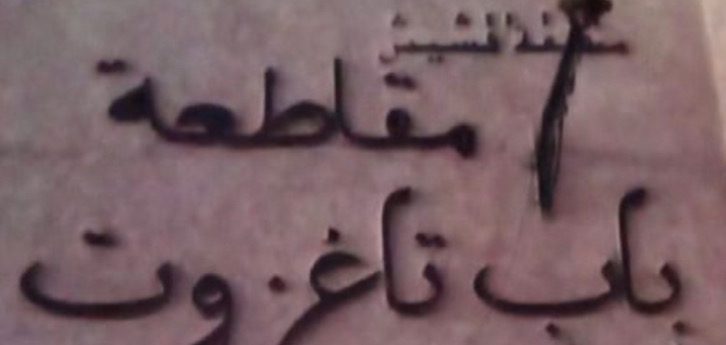 مقاطعة
باب تاغزوت